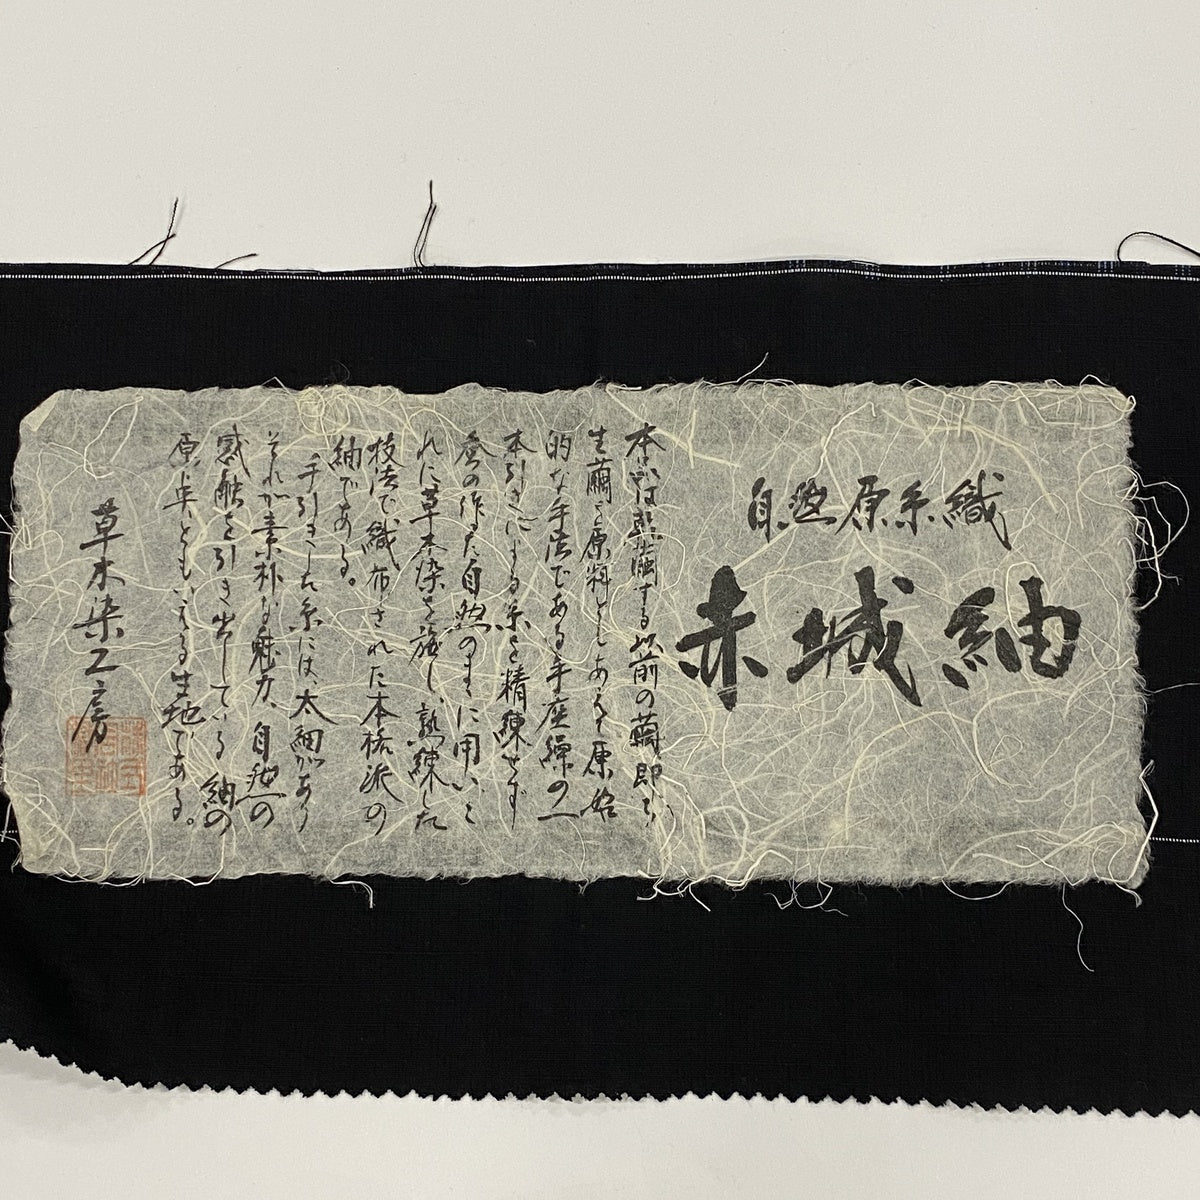 自然原糸織
赤城紬
本品は乾繭する以前の繭即ち
生繭を原料としあえて原始
的な手法である手座繰の一
本引きによる糸を精練せず
蚕の作った自然のまゝに用いこ
れに草木染を施し、熟練した
技法で織布された本格派の
紬である。
手引きした糸には、太細があり
それが素朴な魅力、自然の
感触を引き出している紬の
原点ともいえる生地である。
草木染工房